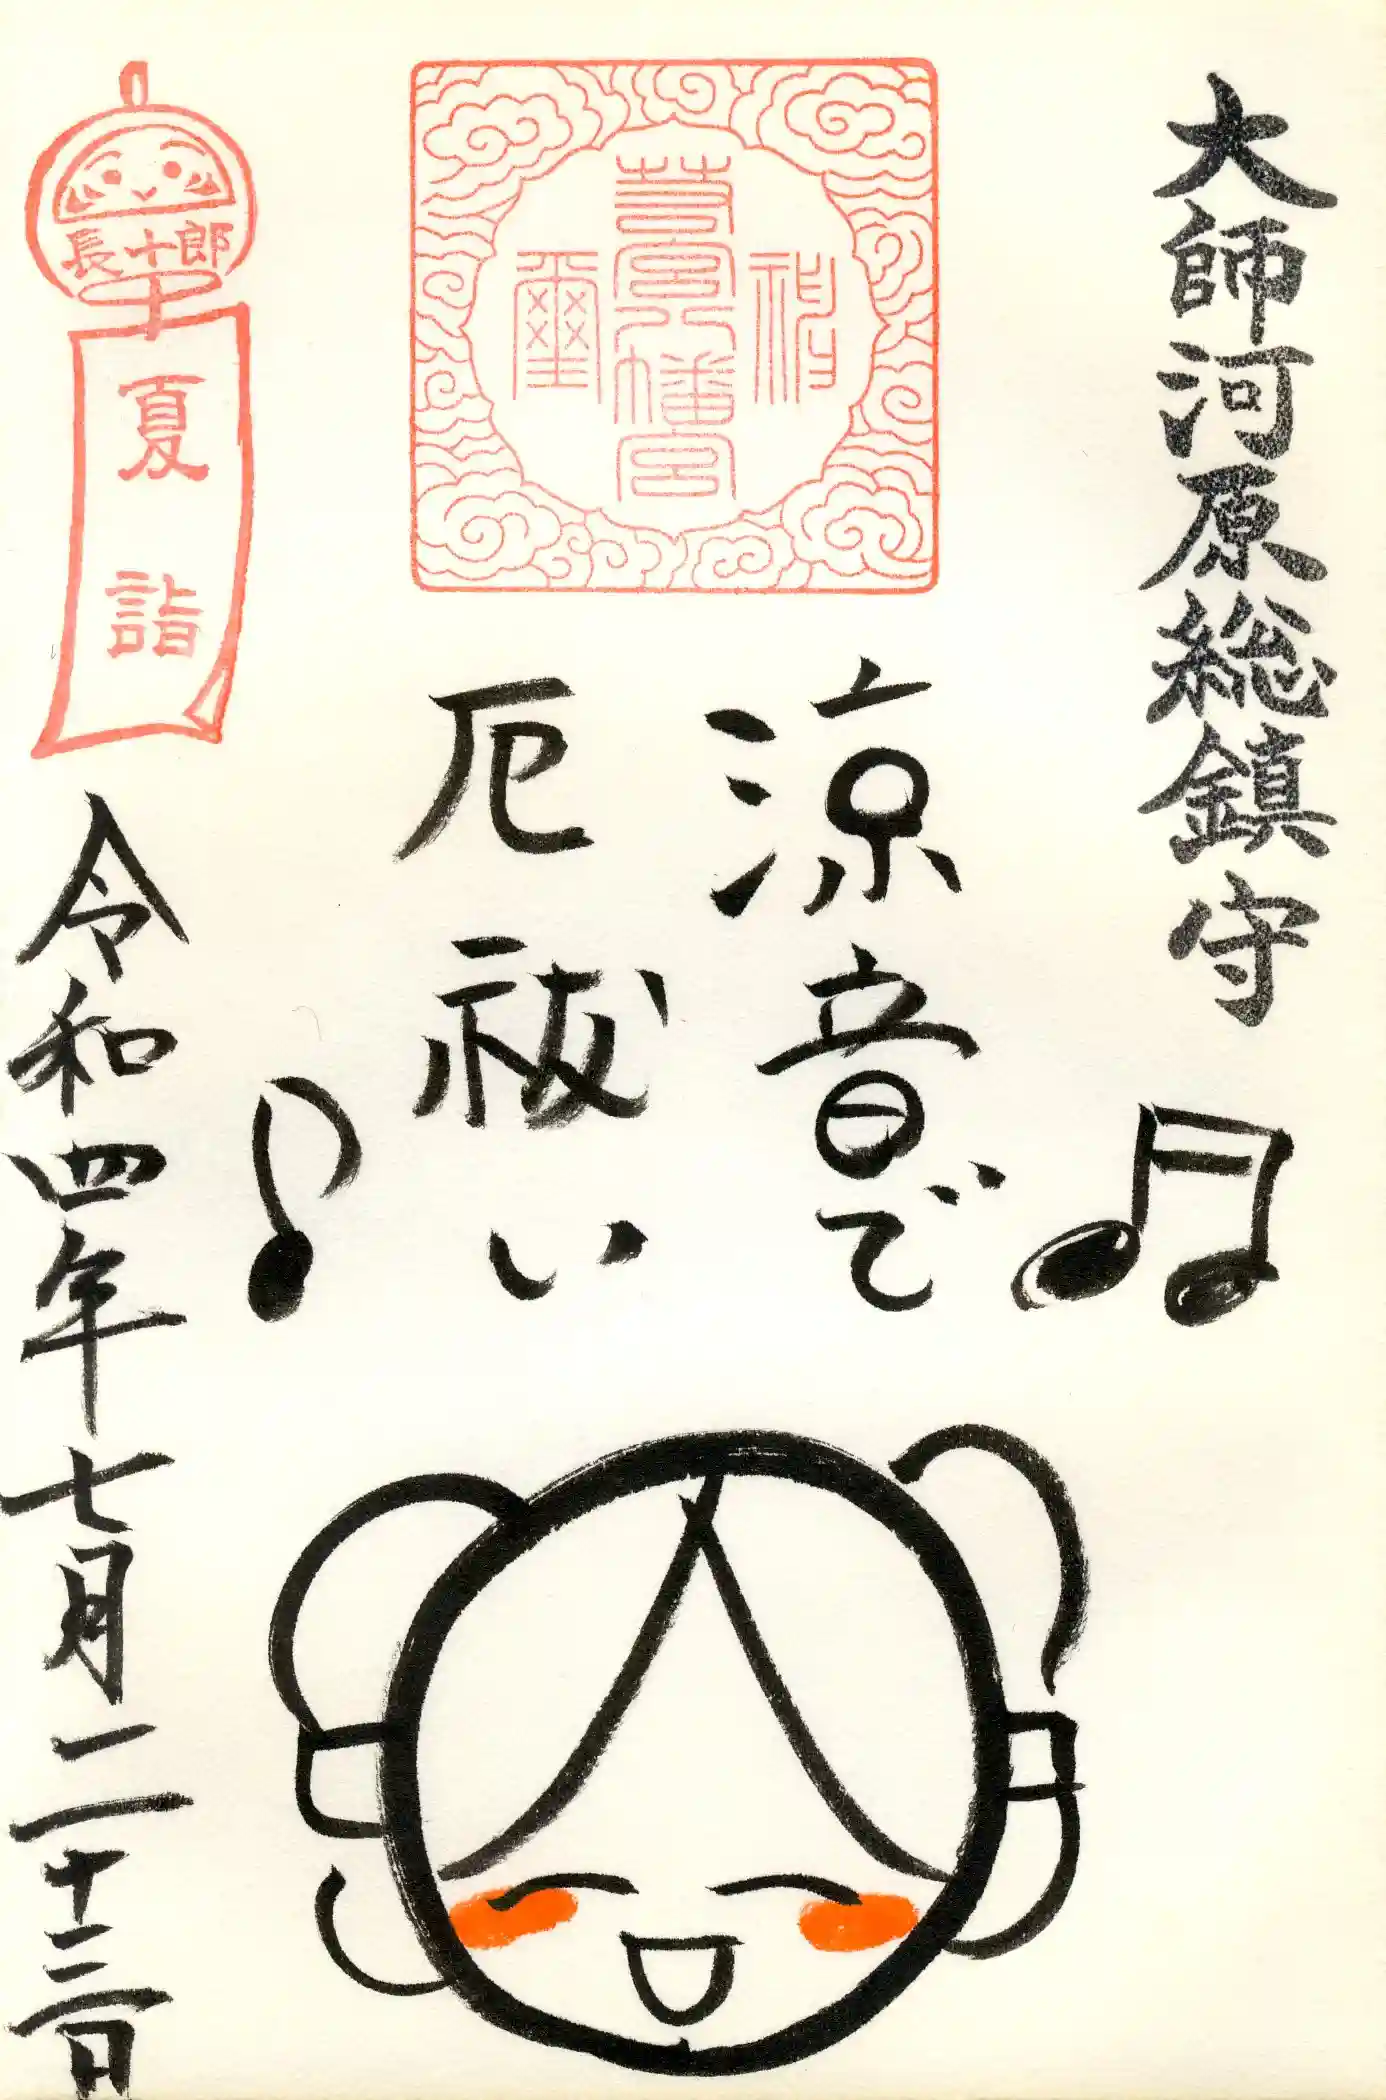 大師河原総鎮守
神
若宮八幡宮
璽
涼音で
厄祓い
長十郎
夏詣
令和四年七月二十三日